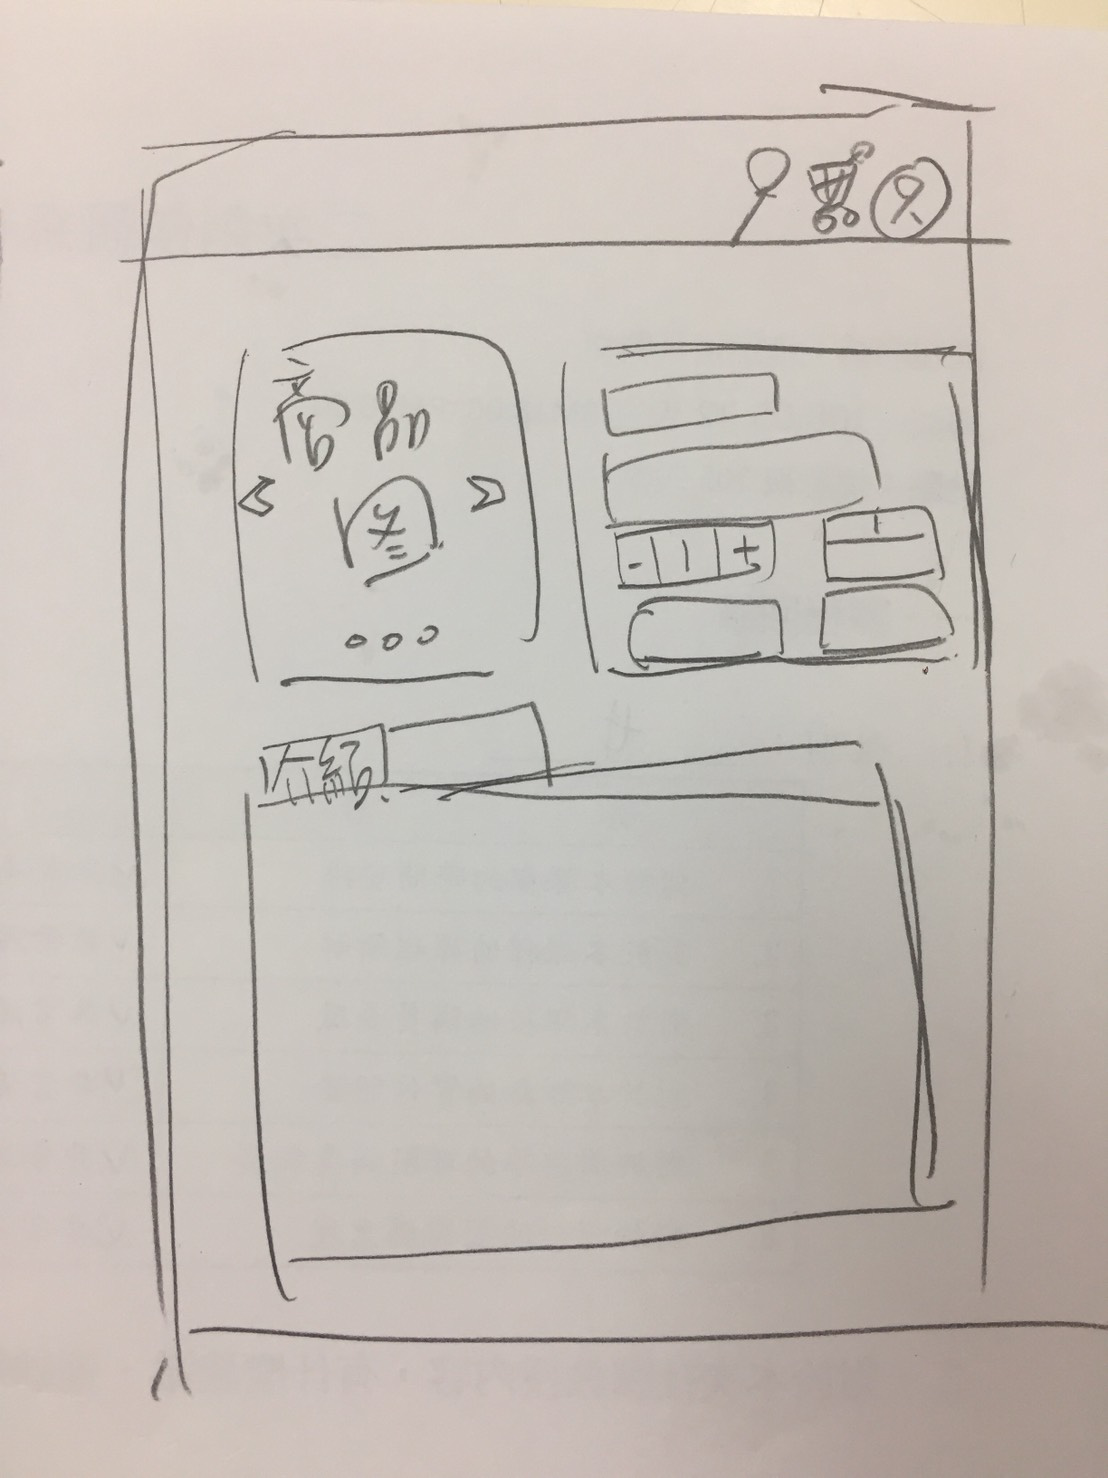 商品
圖
- 1 +
介紹